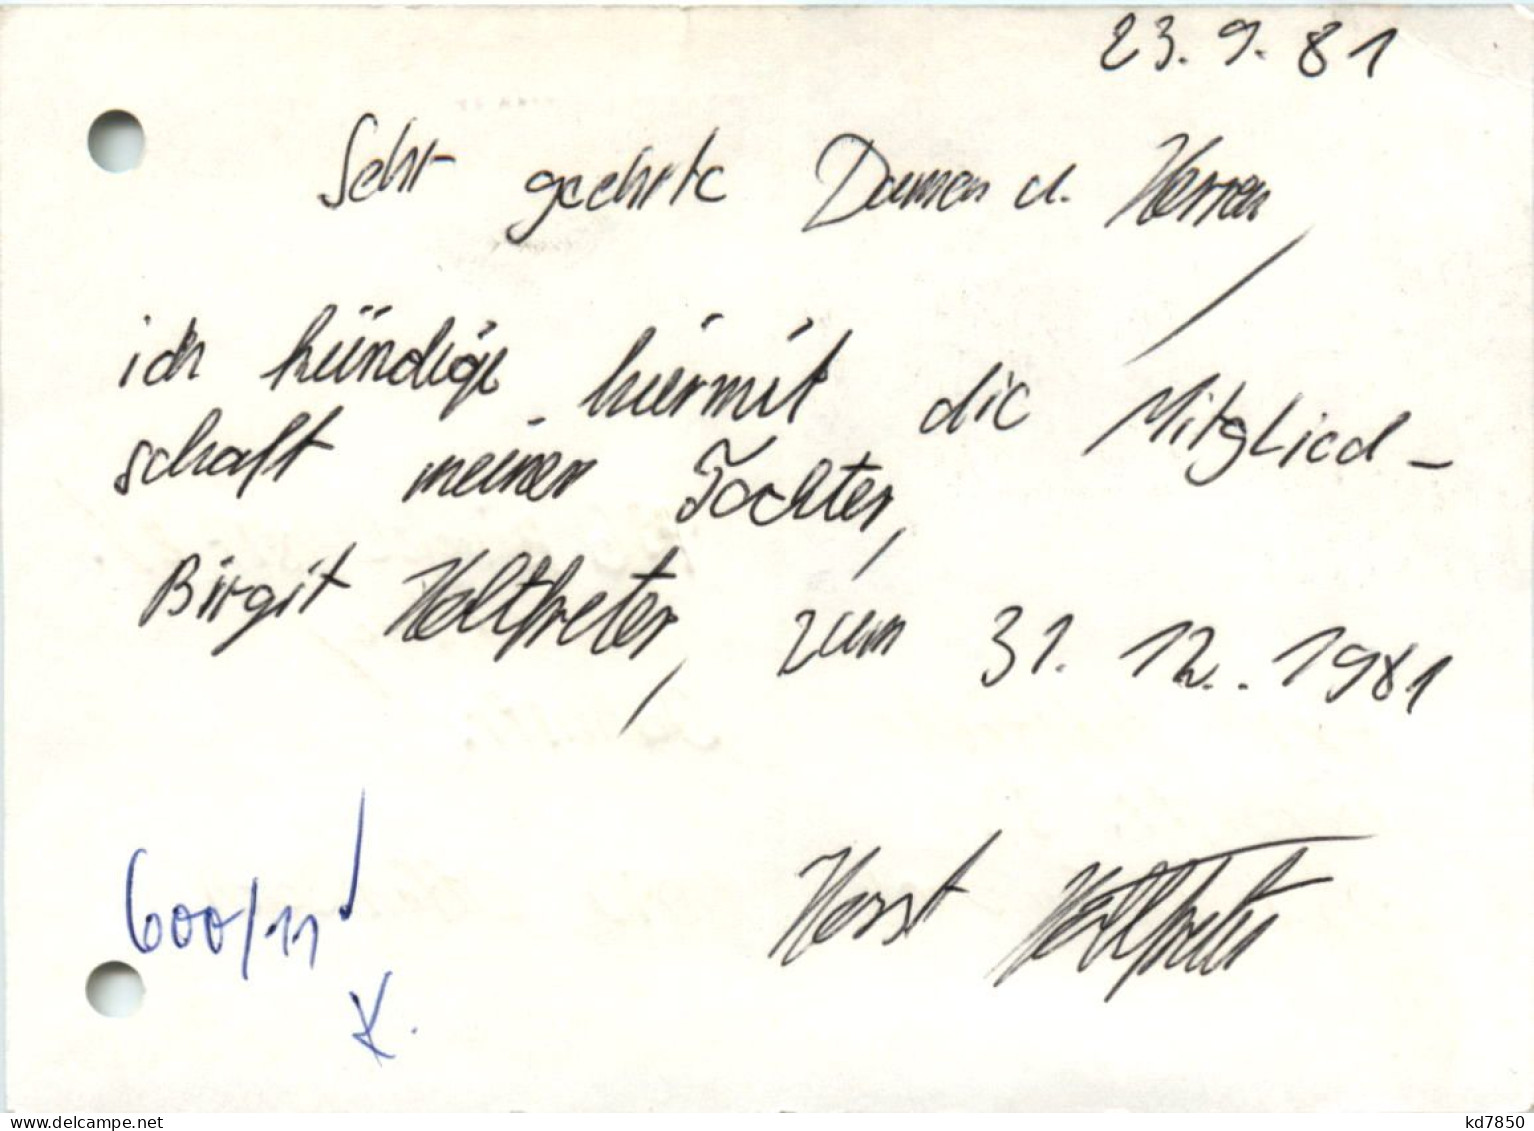 23. 9. 81
Sehr geehrte Damen u. Herren,
ich kündige hiermit die Mitglied-
schaft meiner Tochter,
Birgit Holtfreter, zum 31. 12.. 1981
600/11
Horst Holtfreter
K.
delcampe.net
kd7850